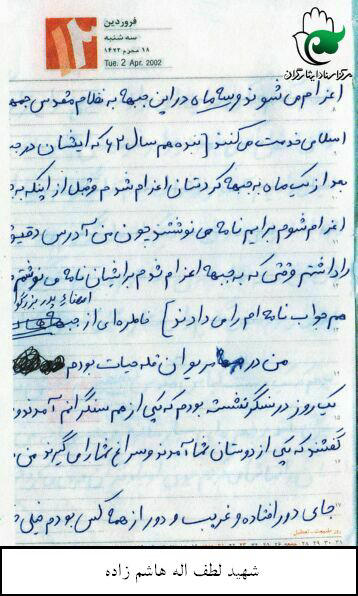 فروردین
۱۳
سه شنبه
۱۸ محرم ۱۴۲۳
Tue. 2 Apr. 2002
مرکز اسناد ایثارگران
اعزام می شوند و سه ماه در این جبهه به نظام مقدس جمهو
اسلامی خدمت می کنند [بنده هم سال ۶۲ که ایشان در جب
بعد از یک ماه به جبهه کردستان اعزام شدم و قبل از اینکه به
اعزام شوم برایم نامه می نوشتند چون من آدرس دقیق
را داشتم وقتی که به جبهه اعزام شدم برایشان نامه می نوشتم
امضاء پدر بزرگو
هم جواب نامه ام را می دادند] خاطره ای از جبهه ها
من در مریوان قله حیات بودم
یک روز در سنگر نشسته بودم که یکی از هم سنگرانم آمدند و
گفتند که یکی از دوستان شما آمدند و سراغ شما را می گیرند من
جای دور افتاده و غریب و دور از همه کس بودم خیلی
شهید لطف اله هاشم زاده